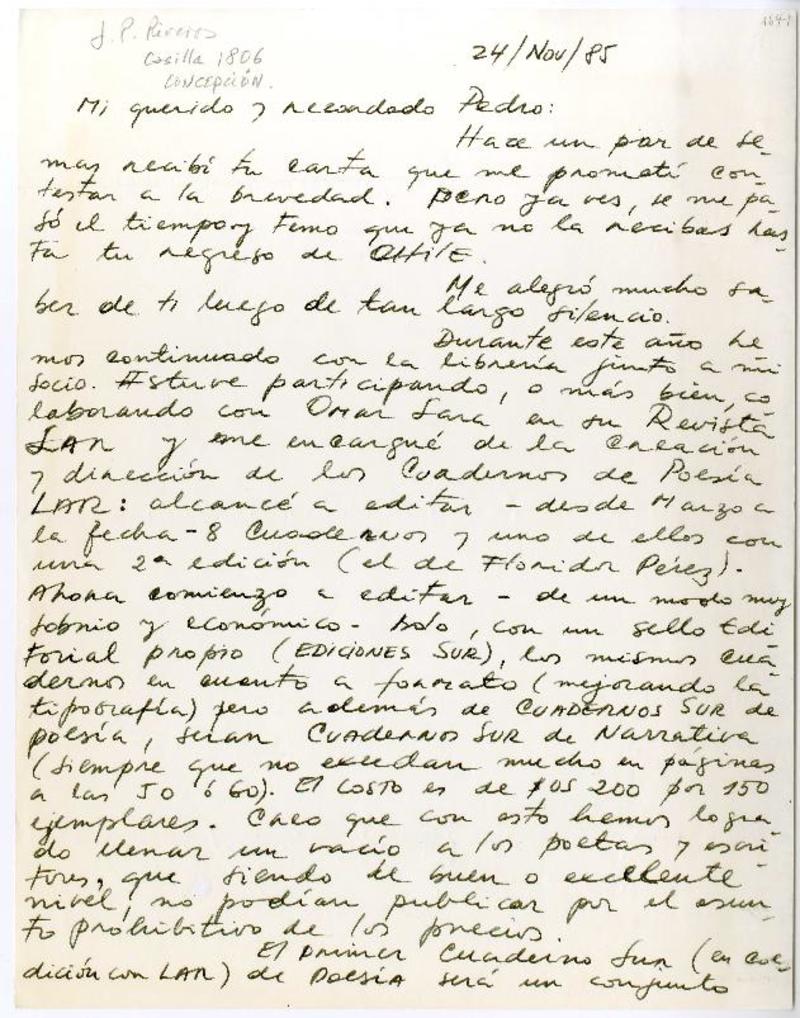 J. P. Riveros
Casilla 1806
CONCEPCIÓN.
24/Nov/85
Mi querido y recordado Pedro:
Hace un par de se-
manas recibí tu carta que me prometí con-
testar a la brevedad. Pero ya ves, se me pa-
só el tiempo y temo que ya no la recibas has-
ta tu regreso de CHILE.
Me alegró mucho sa-
ber de ti luego de tan largo silencio.
Durante este año he
mos continuado con la librería junto a mi
socio. Estuve participando, o más bien, co
laborando con Omar Lara en su Revista
LAR y me encargué de la creación
y dirección de los Cuadernos de Poesía
LAR: alcancé a editar - desde Marzo a
la fecha - 8 Cuadernos y uno de ellos con
una 2ª edición (el de Floridor Pérez).
Ahora comienzo a editar - de un modo muy
sobrio y económico - solo, con un sello Edi
torial propio (EDICIONES SUR), los mismos cua-
dernos en cuanto a formato (mejorando la
tipografía) pero además de CUADERNOS SUR de
poesía, seran CUADERNOS SUR de Narrativa
(siempre que no excedan mucho en páginas
a las 50 ó 60). El costo es de $US 200 por 150
ejemplares. Creo que con esto hemos logra-
do llenar un vacío a los poetas y escri-
tores, que siendo de buen o excelente
nivel, no podían publicar por el asun-
to prohibitivo de los precios.
El primer Cuaderno Sur (en coe-
dición con LAR) de POESÍA será un conjunto